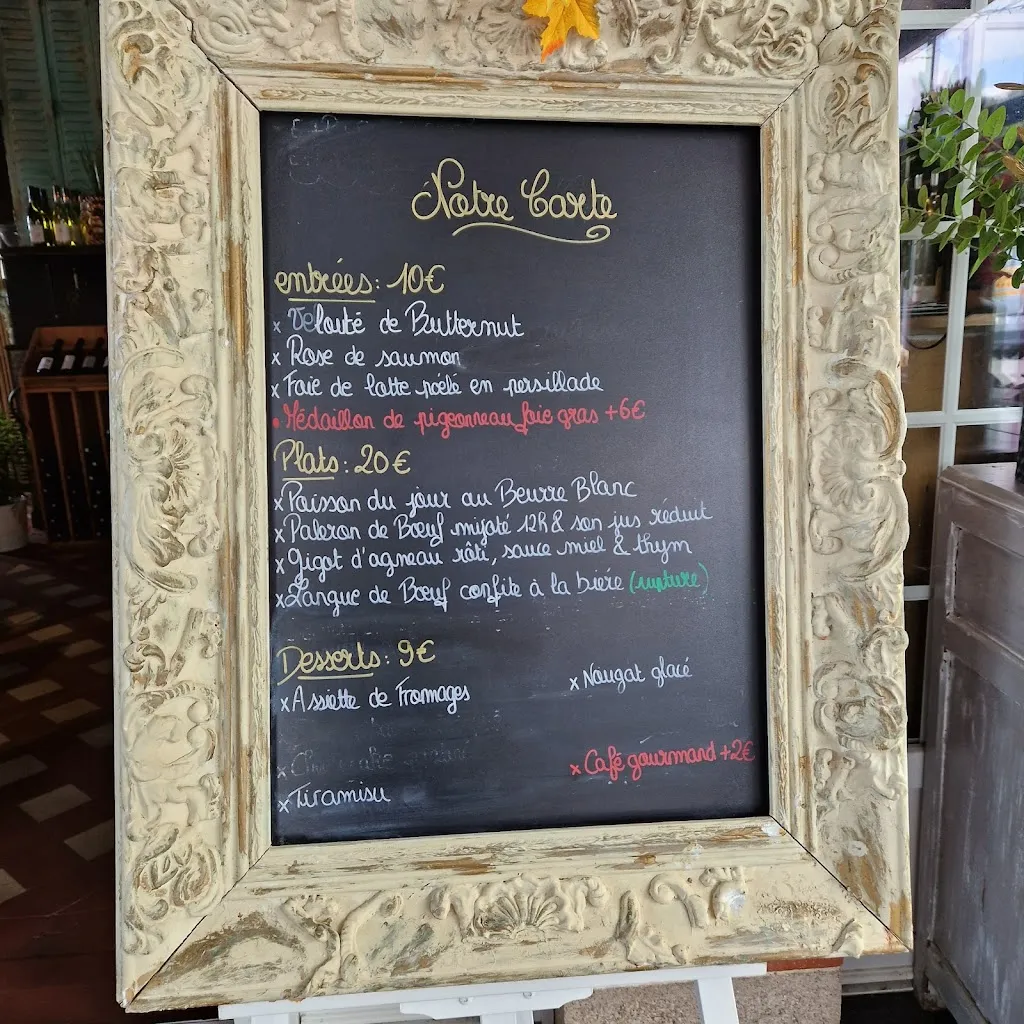 Notre Carte
entrées: 10€
x Velouté de Butternut
x Rose de saumon
x Foie de lotte poêlé en persillade
• Médaillon de pigeonneau foie gras +6€
Plats: 20€
x Poisson du jour au Beurre Blanc
x Paleron de Bœuf mijoté 12h & son jus réduit
x Gigot d'agneau rôti, sauce miel & thym
x Langue de Bœuf confite à la bière (rupture)
Desserts: 9€
x Assiette de Fromages
x Nougat glacé
x Café gourmand +2€
x Tiramisu